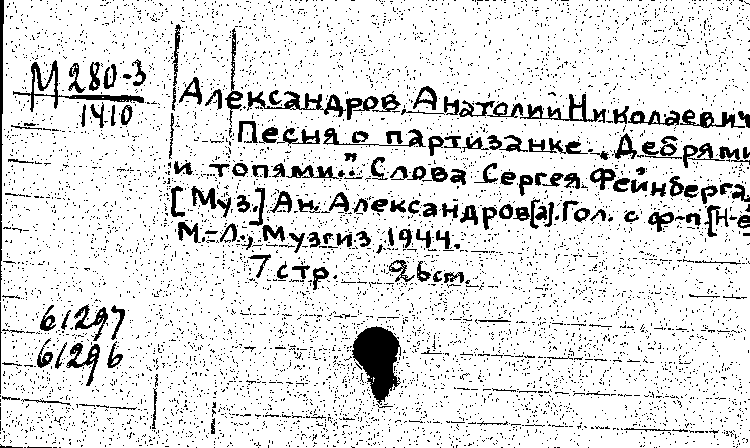 М 280-3
1410
Александров, Анатолий Николаевич
Песня о партизанке. „Дебрями
и топями." Слова Сергея Фейнберга.
[Муз.] Ан. Александров[а]. Гол. с ф-п [н-е
М.-Л., Музгиз, 1944.
7 стр. 2 вст.
61297
61296